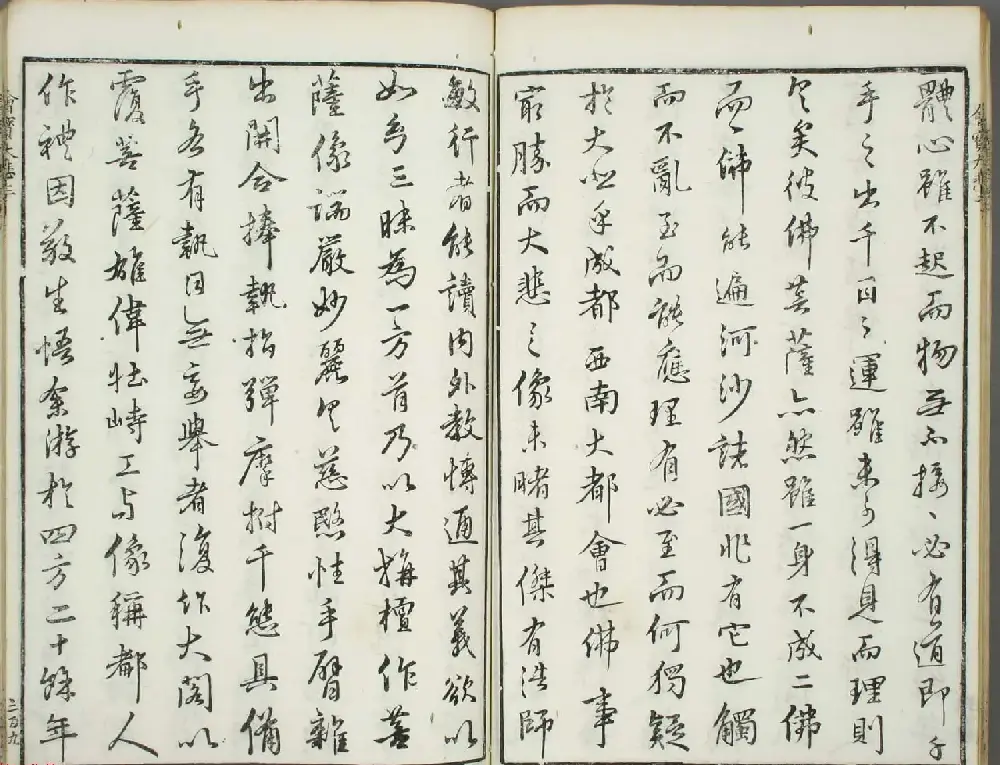 體心雖不起而物無不接、必有道即千
手之出千目之運雖未可得見而理則
具矣彼佛菩薩亦然雖一身不成二佛
而一佛能遍河沙諸國非有它也觸
而不亂至而能應理有必至而何獨疑
於大悲乎成都西南大都會也佛事
最勝而大悲之像未睹其傑有浩師
敏行者能讀內外教博通其義欲以
如幻三昧為一方首乃以大旃檀作菩
薩像端嚴妙麗具慈愍性手臂雜
出開合捧執指彈摩拊千態具備
手各有執目無妄舉者復作大閣以
覆菩薩雄偉壯峙工與像稱都人
作禮因敬生悟余游於四方二十餘年
二百九